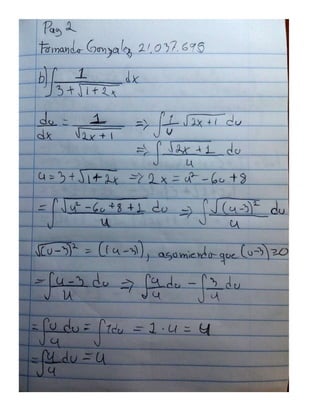 Pag 2
Fernando Gonzalez 21.037.695
b) ∫ 1/(3+√(1+2x)) dx
du/dx = 1/√(2x+1) ⇒ ∫ 1/u √(2x+1) du
⇒ ∫ √(2x+1)/u du
u = 3+√(1+2x) ⇒ 2x = u² - 6u + 8
= ∫ √(u² - 6u + 8 + 1)/u du ⇒ ∫ √((u-3)²)/u du
√(u-3)² = (|u-3|), asumiendo que (u-3) ≥ 0
= ∫ (u-3)/u du ⇒ ∫ u/u du - ∫ 3/u du
= ∫ u/u du = ∫ 1 du = 1 · u = u
= ∫ u/u du = u